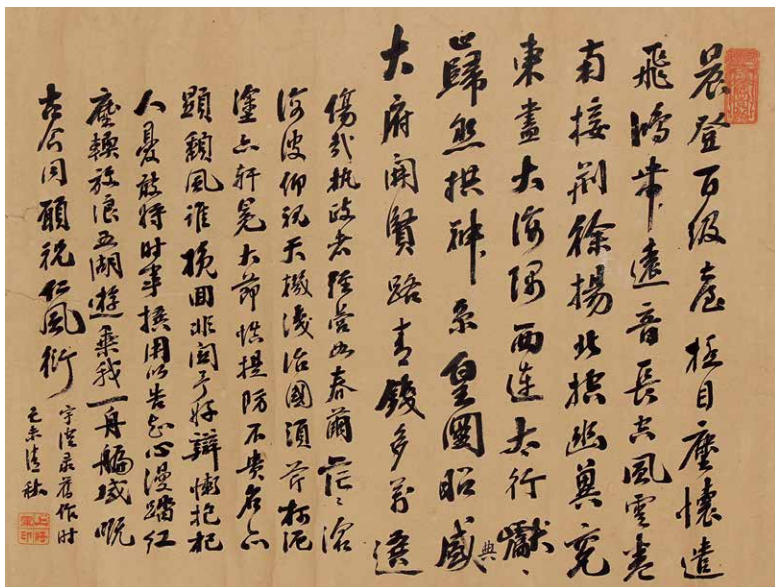 晨登百級臺極目塵懷遣
飛鴻帶遠音長空風雲卷
南接荆徐揚北控幽冀兖
東盡大海隅西連太行巘
巋然拱神京皇圖昭盛典
大府開賢路青錢多萬選
傷哉執政者經營如春繭茫〻滄
海波仰視天機淺治國須斧柯泥
塗亦軒冕大節慎提防不貴名亦
顯頹風誰挽回非予好辯慚抱杞
人憂敢將時事撰用以告知心漫踏紅
塵輭放浪五湖遊乘我一舟艑感嘅
古今同願祝仁風衍
宇澄录舊作时
己未清秋